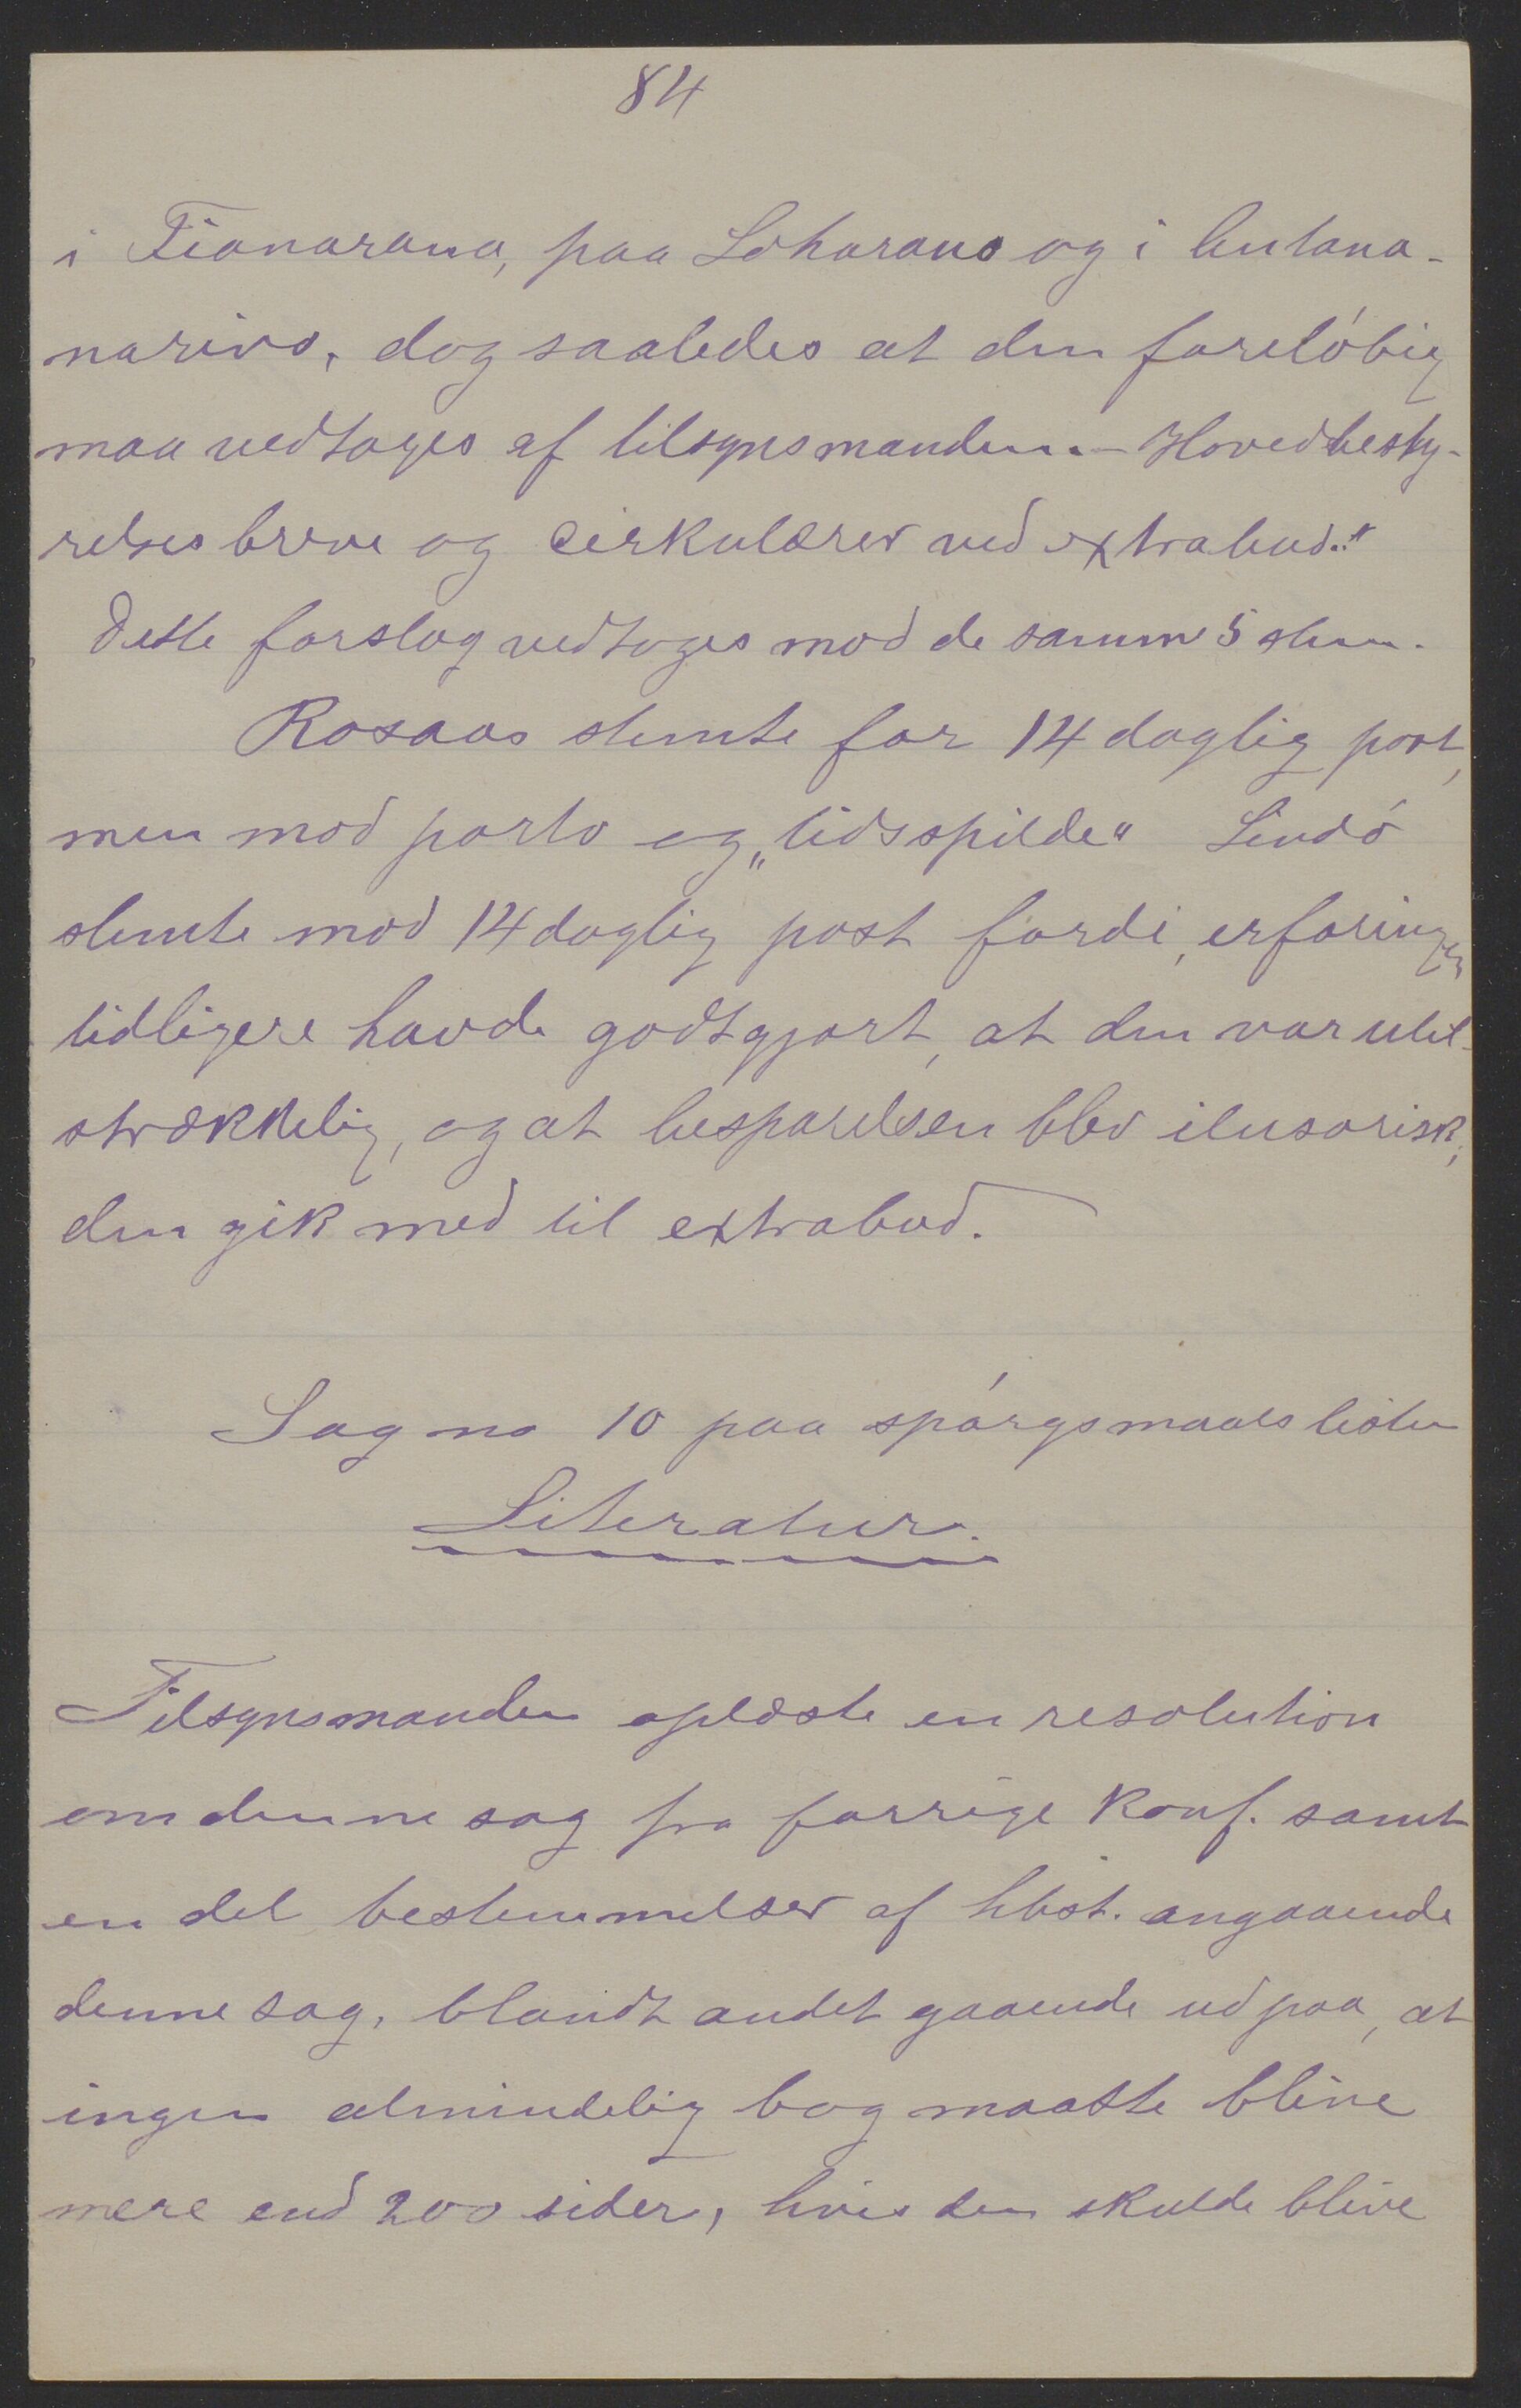 84
i Fianarana, paa Loharano og i Antana-
narivo, dog saaledes at den foreløbig
maa vedtages af tilsynsmanden. – Hovedbesty-
relsesbreve og cirkulærer ved extrabud."
Dette forslag vedtoges mod de samme 5 stem.
Rosaas stemte for 14 daglig post,
men mod porto og „tidsspilde" Lindø
stemte mod 14 daglig post fordi, erfaringen
tidligere havde godtgjort, at den var util-
strækkelig, og at besparelsen blev ilusorisk,
den gik med til extrabud.
Sag no 10 paa spørgsmaalslisten
Literatur.
Tilsynsmanden oplæste en resolution
om denne sag fra forrige Konf. samt
en del bestemmelser af hbst. angaaende
denne sag, blandt andet gaaende ud paa, at
ingen almindelig bog maatte blive
mere end 200 sider, hvis den skulde blive